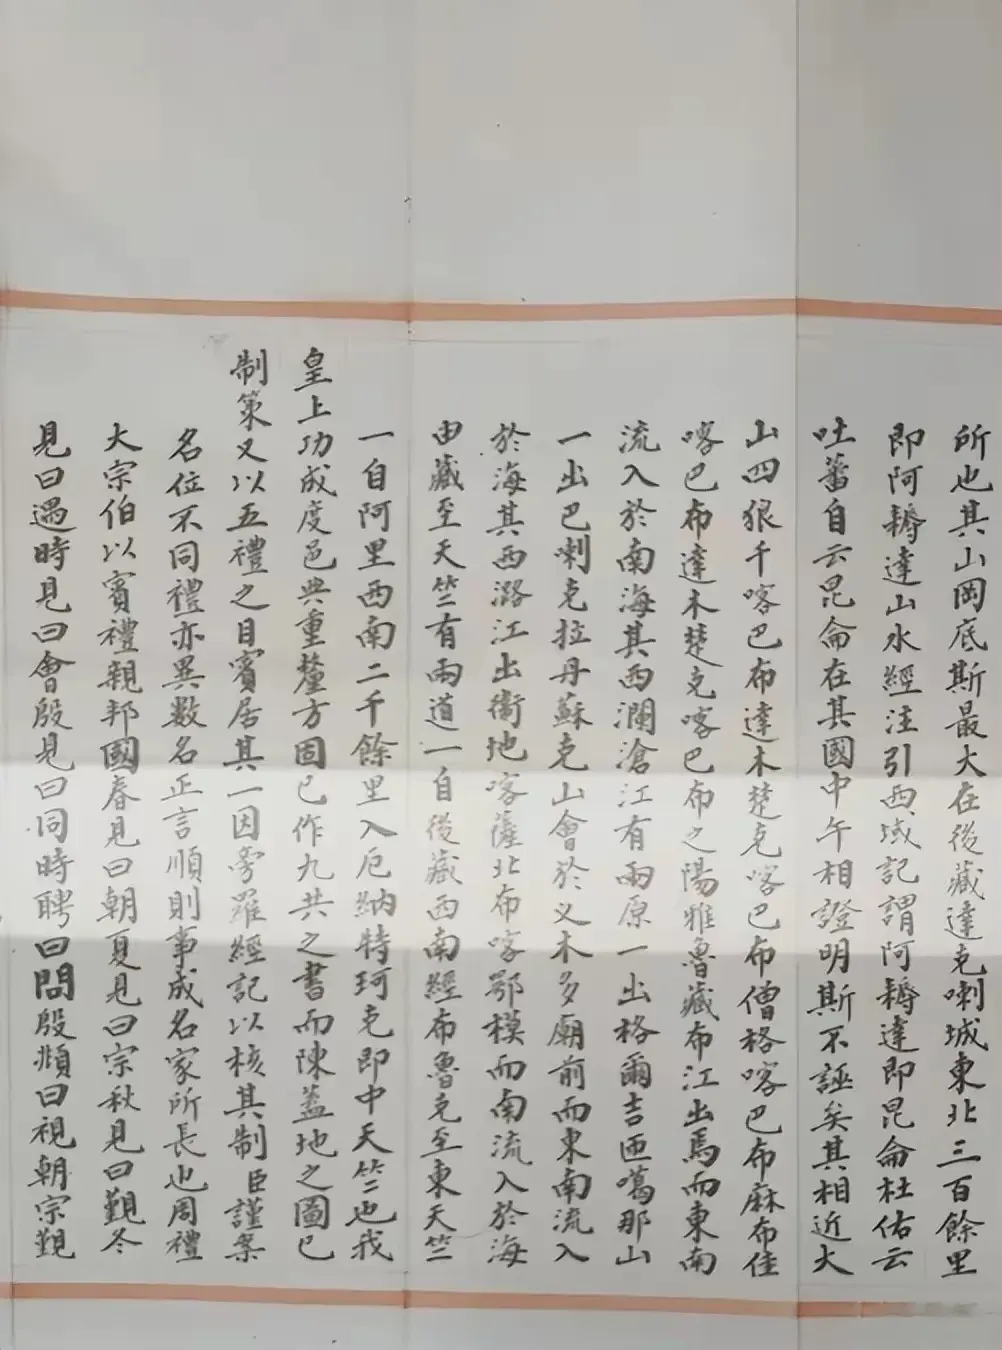 所也其山岡底斯最大在後藏達克喇城東北三百餘里
即阿耨達山水經注引西域記謂阿耨達即昆侖杜佑云
吐蕃自云昆侖在其國中午相證明斯不誣矣其相近大
山四狼千喀巴布達木楚克喀巴布僧格喀巴布麻布佳
喀巴布達木楚克喀巴布之陽雅魯藏布江出焉而東南
流入於南海其西瀾滄江有兩原一出格爾吉匝噶那山
一出巴喇克拉丹蘇克山會於义木多廟前而東南流入
於海其西潞江出衛地喀薩北布喀鄂模而南流入於海
由藏至天竺有兩道一自後藏西南經布魯克至東天竺
一自阿里西南二千餘里入厄納特珂克即中天竺也我
皇上功成度邑典重釐方固已作九共之書而陳蓋地之圖已
制策又以五禮之目賓居其一因旁羅經記以核其制臣謹案
名位不同禮亦異數名正言順則事成名家所長也周禮
大宗伯以賓禮親邦國春見曰朝夏見曰宗秋見曰覲冬
見曰遇時見曰會殷見曰同時聘曰問殷覜曰視朝宗覲